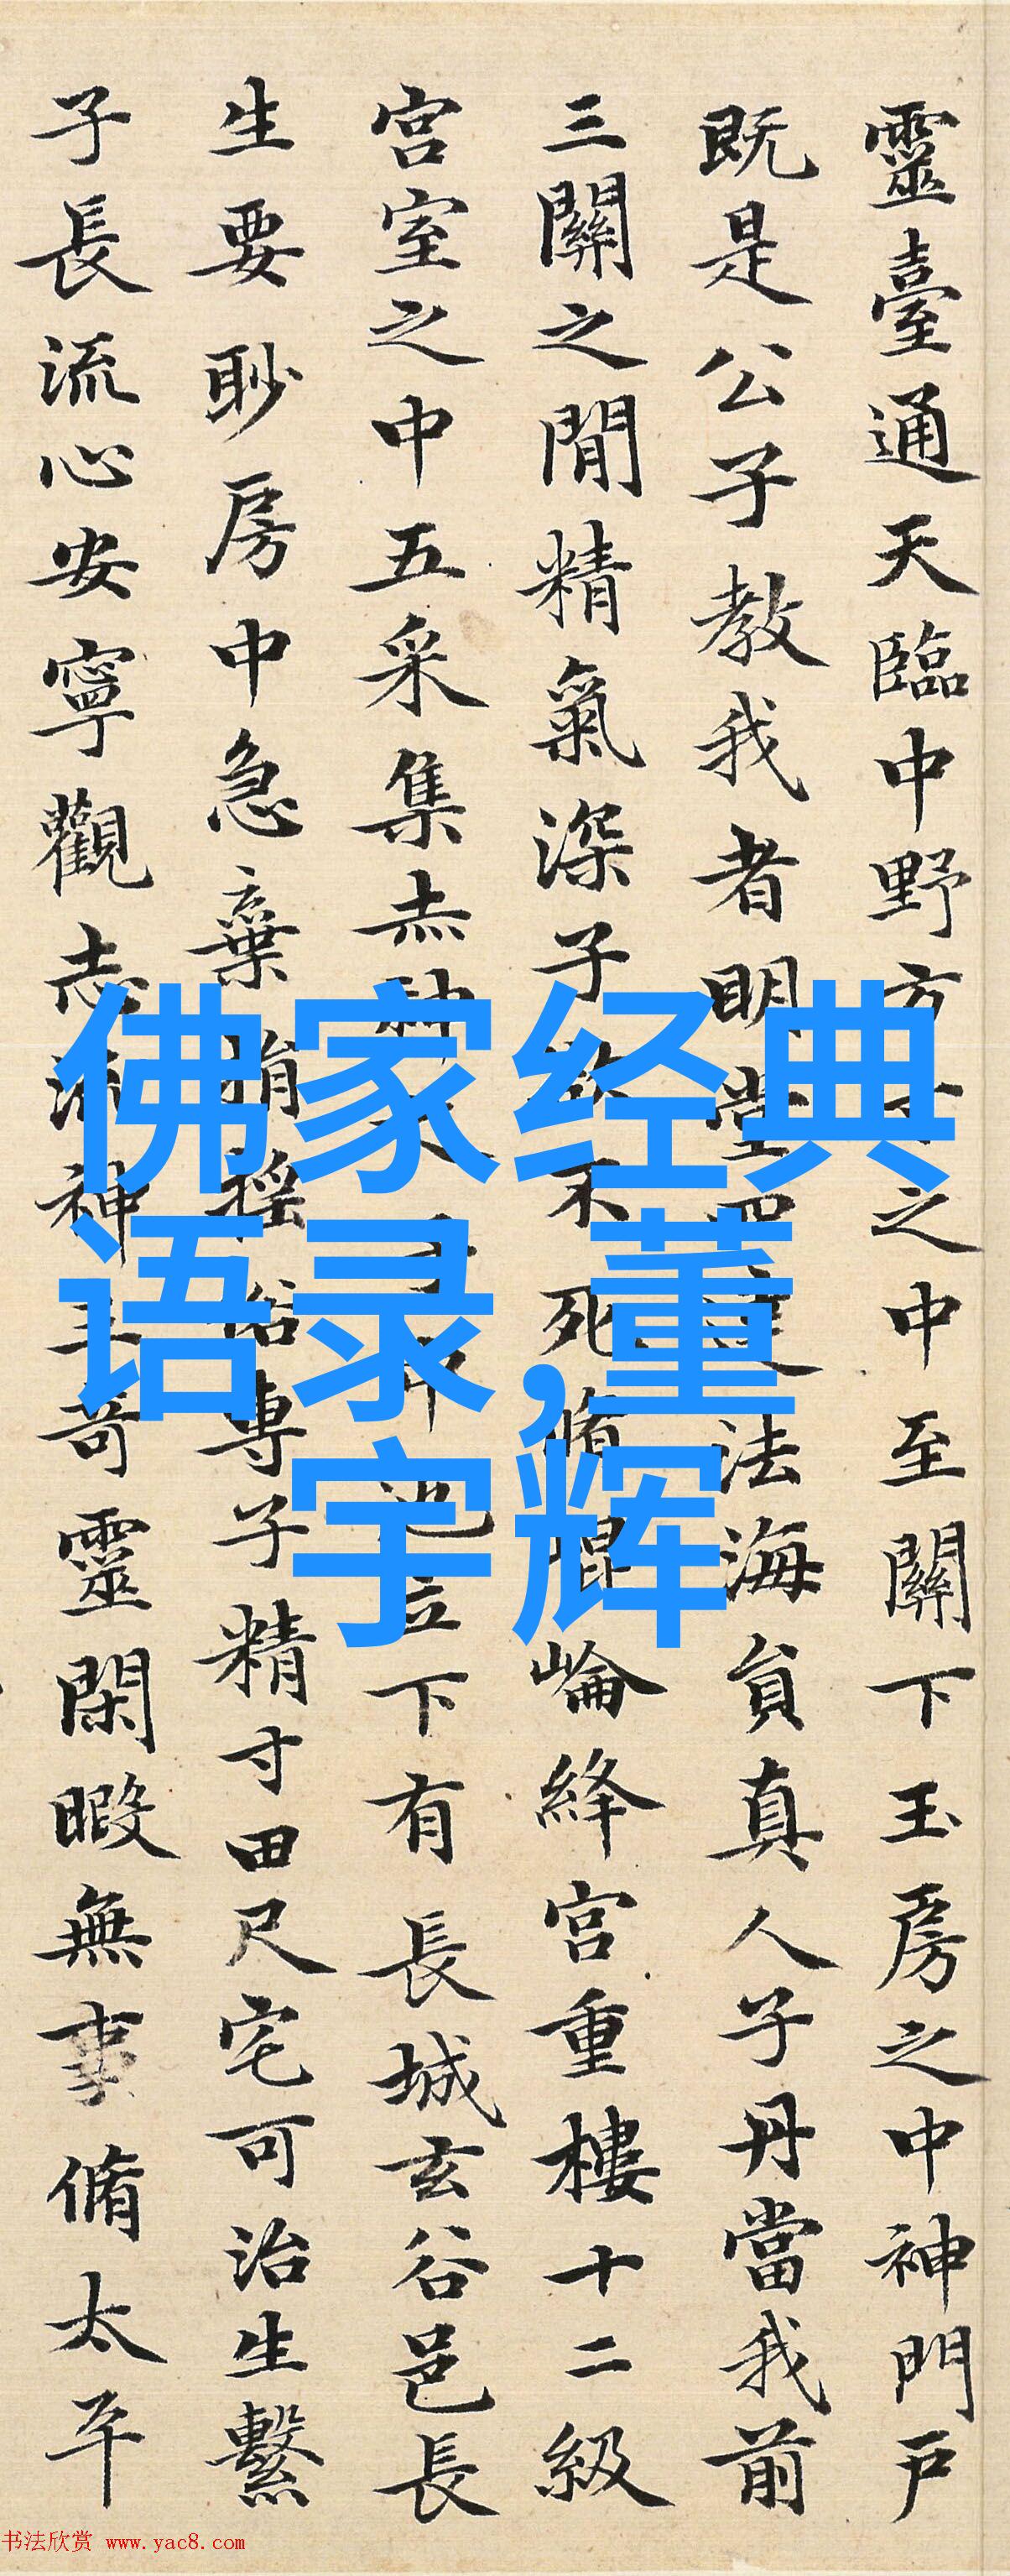 靈臺通天臨中野方之中至關下玉房之中神門戶
既是公子教我者明堂法海員真人子丹當我前
三關之間精氣深子欲不死脩崐崘絳宮重樓十二級
宮室之中五采集赤神池立下有長城玄谷邑長
生要眇房中急棄捐搖俗專子精寸田尺宅可治生繫
子長流心安寧觀志流神三奇靈閑暇無事脩太平
佛家经典
语录,董
宇辉
书法欣赏 www.yac8.com